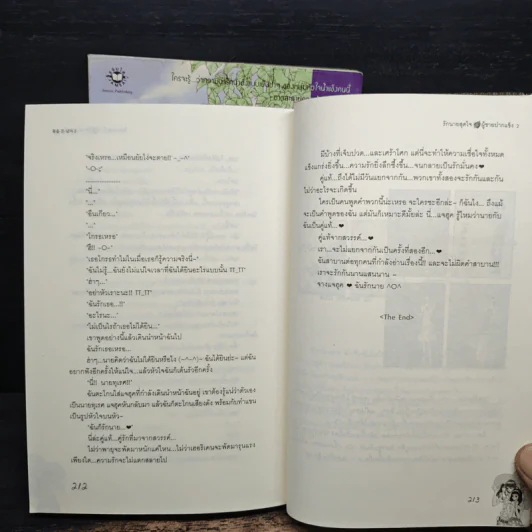 ใครจะรู้...ว่า
'จริงเหรอ...เหมือนยัยโง่จะตาย!! -_-^'
'-O-;'
'นี่...'
'...'
'ยืนเกี่ยว...'
'...'
'โกรธเหรอ'
'ฮึย -O-'
'เธอโกรธทำไมในเมื่อเธอก็รู้ความจริงนี่~'
'ฉันไม่รู้...ฉันยังไม่แน่ใจเวลาที่ฉันได้ยินอะไรแบบนั้น TT_TT'
'ฮ่าๆ...'
'อย่าหัวเราะนะ!! TT_TT'
'ฉันรักเธอ...!!'
'อะไรนะ...'
'ไม่เป็นไรถ้าเธอไม่ได้ยิน...'
เขาพูดอย่างนี้แล้วเดินนำหน้าฉันไป
ฉันรักเธอเหรอ...
ฮ่าๆ...นายคิดว่าฉันไม่ได้ยินหรือไง (~^~^)~ ฉันได้ยินย่ะ~ แต่ฉัน
อยากฟังอีกครั้งให้แน่ใจ...แล้วหัวใจฉันก็เต้นรัวอีกครั้ง
'นี่!! นายทุเรศ!!'
ฉันตะโกนใส่แจฮุคที่กำลังเดินนำหน้าฉันอยู่ เขาต้องรู้แน่ว่าตัวเอง
เป็นนายทุเรศ แจฮุคหันกลับมา แล้วฉันก็ตะโกนเสียงดัง พร้อมกับทำแขน
เป็นรูปหัวใจบนหัว~
'ฉันก็รักนาย...❤'
นี่ล่ะคู่แท้...คู่รักที่มาจากสวรรค์...
ไม่ว่าพายุจะพัดมาหนักแค่ไหน...ไม่ว่าเฮอริเคนจะพัดมารุนแรง
เพียงใด...ความรักจะไม่แตกสลายไป
212
รักนายสุดใจ ผู้ชายปากแข็ง 2
มีบ้างที่เจ็บปวด...และเศร้าโศก แต่นี่จะทำให้ความเชื่อใจทั้งหมด
แข็งแกร่งยิ่งขึ้น...ความรักยิ่งลึกซึ้งขึ้น...จนกลายเป็นรักมั่นคง❤
คู่แท้...ถึงได้ไม่มีวันแยกจากกัน...พวกเขาทั้งสองจะรักกันและกัน
ไม่ว่าอะไรจะเกิดขึ้น
ใครเป็นคนพูดคำพวกนี้น่ะเหรอ จะใครซะอีกล่ะ~ ก็ฉันไง... ถึงแม้
จะเป็นคำพูดของฉัน แต่มันก็เหมาะดีมั้ยล่ะ นี่...แจฮุค รู้ไหมว่านายกับ
ฉันเป็นคู่แท้...❤
คู่แท้จากสวรรค์...❤
เรา...จะไม่แยกจากกันเป็นครั้งที่สองอีก...❤
ฉันสาบานต่อทุกคนที่กำลังอ่านเรื่องนี้!! และจะไม่ผิดคำสาบาน!!!
เราจะรักกันนานแสนนาน ~
จางแจฮุค ❤ ฉันรักนาย ^O^
<The End>
213